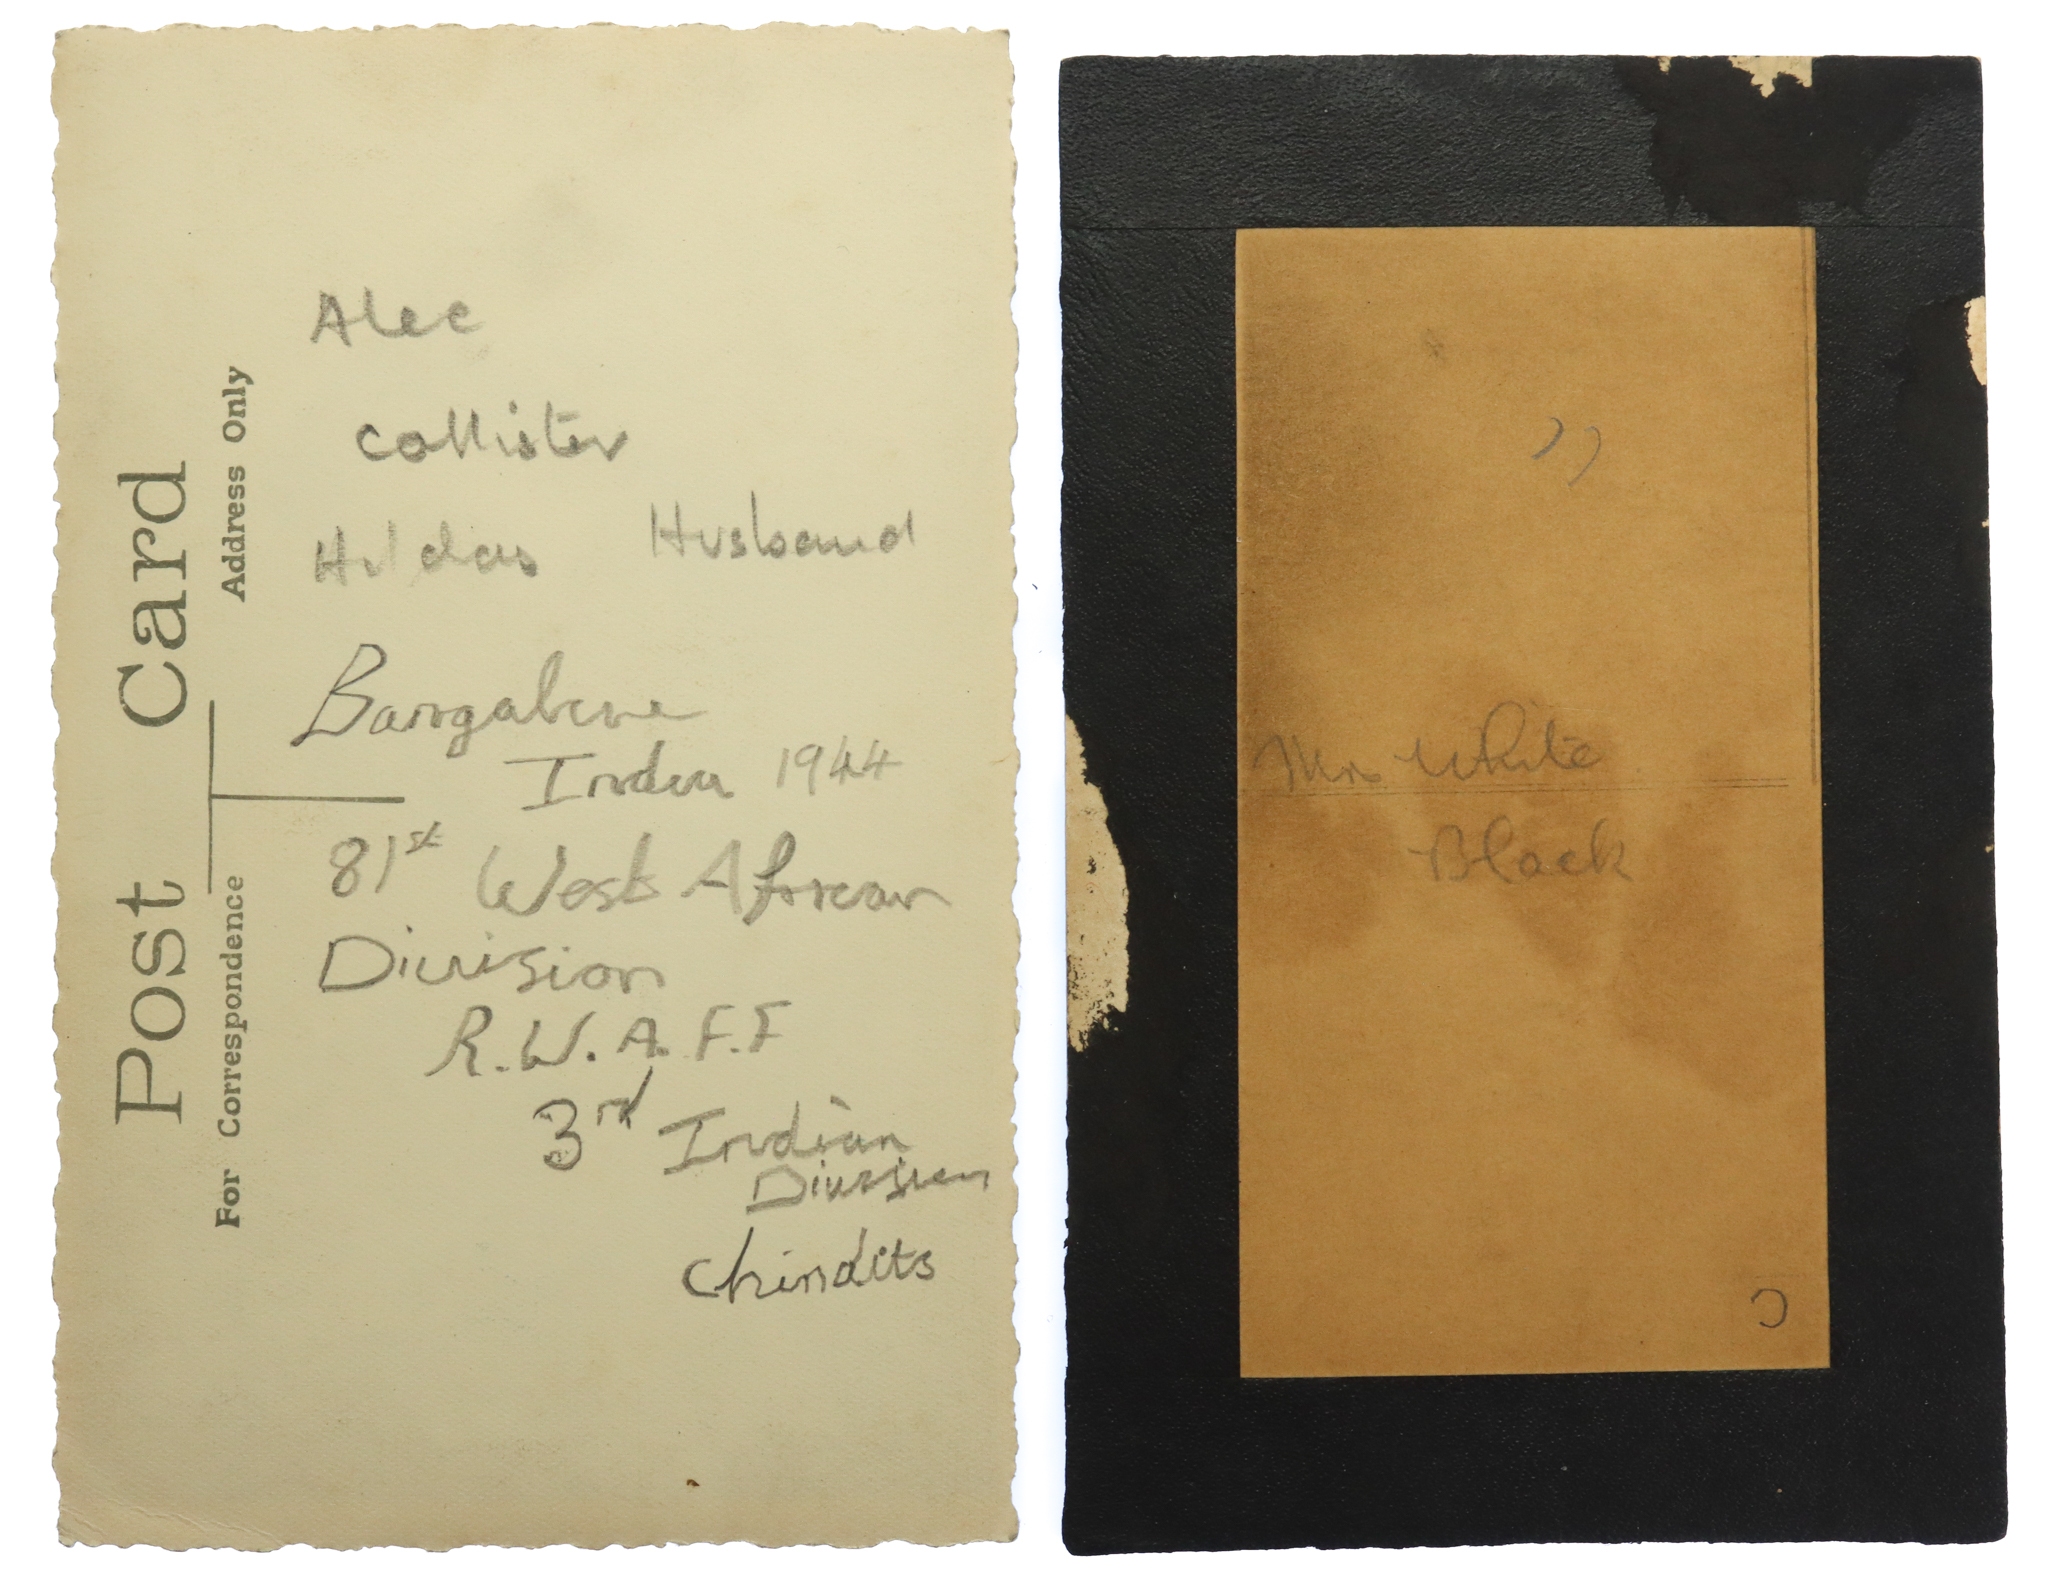 Post Card
For Correspondence
Address Only
Alec
Collister
Hildas Husband
Bangalore
India 1944
81st West African
Division
R.W.A.F.F
3rd Indian
Division
Chindits
Mr White
Block